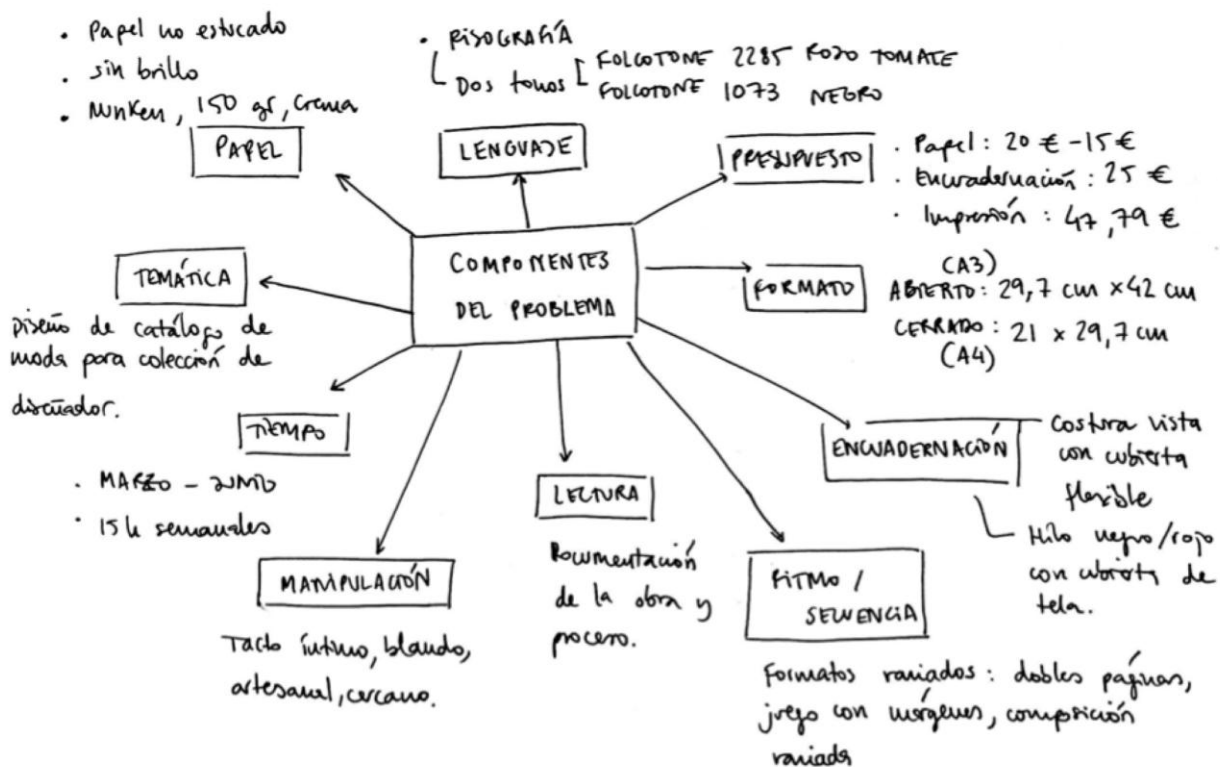 • Papel no estucado
• sin brillo
• Munken, 150 gr, crema
PAPEL
• RISOGRAFÍA
Dos tonos
FOLCOTONE 2285 ROJO TOMATE
FOLCOTONE 1073 NEGRO
LENGUAJE
PRESUPUESTO
• Papel: 20 € - 15 €
• Encuadernación: 25 €
• Impresión: 47,79 €
COMPONENTES
DEL PROBLEMA
TEMÁTICA
Diseño de catálogo de
moda para colección de
diseñador.
FORMATO
(A3)
ABIERTO: 29,7 cm x 42 cm
CERRADO: 21 x 29,7 cm
(A4)
TIEMPO
• MARZO - JUNIO
• 15 h semanales
ENCUADERNACIÓN
Costura vista
con cubierta
flexible
Hilo negro/rojo
con cubierta de
tela.
MANIPULACIÓN
Tacto íntimo, blando,
artesanal, cercano.
LECTURA
Documentación
de la obra y
proceso.
RITMO /
SECUENCIA
Formatos variados: dobles páginas,
juego con márgenes, composición
variada